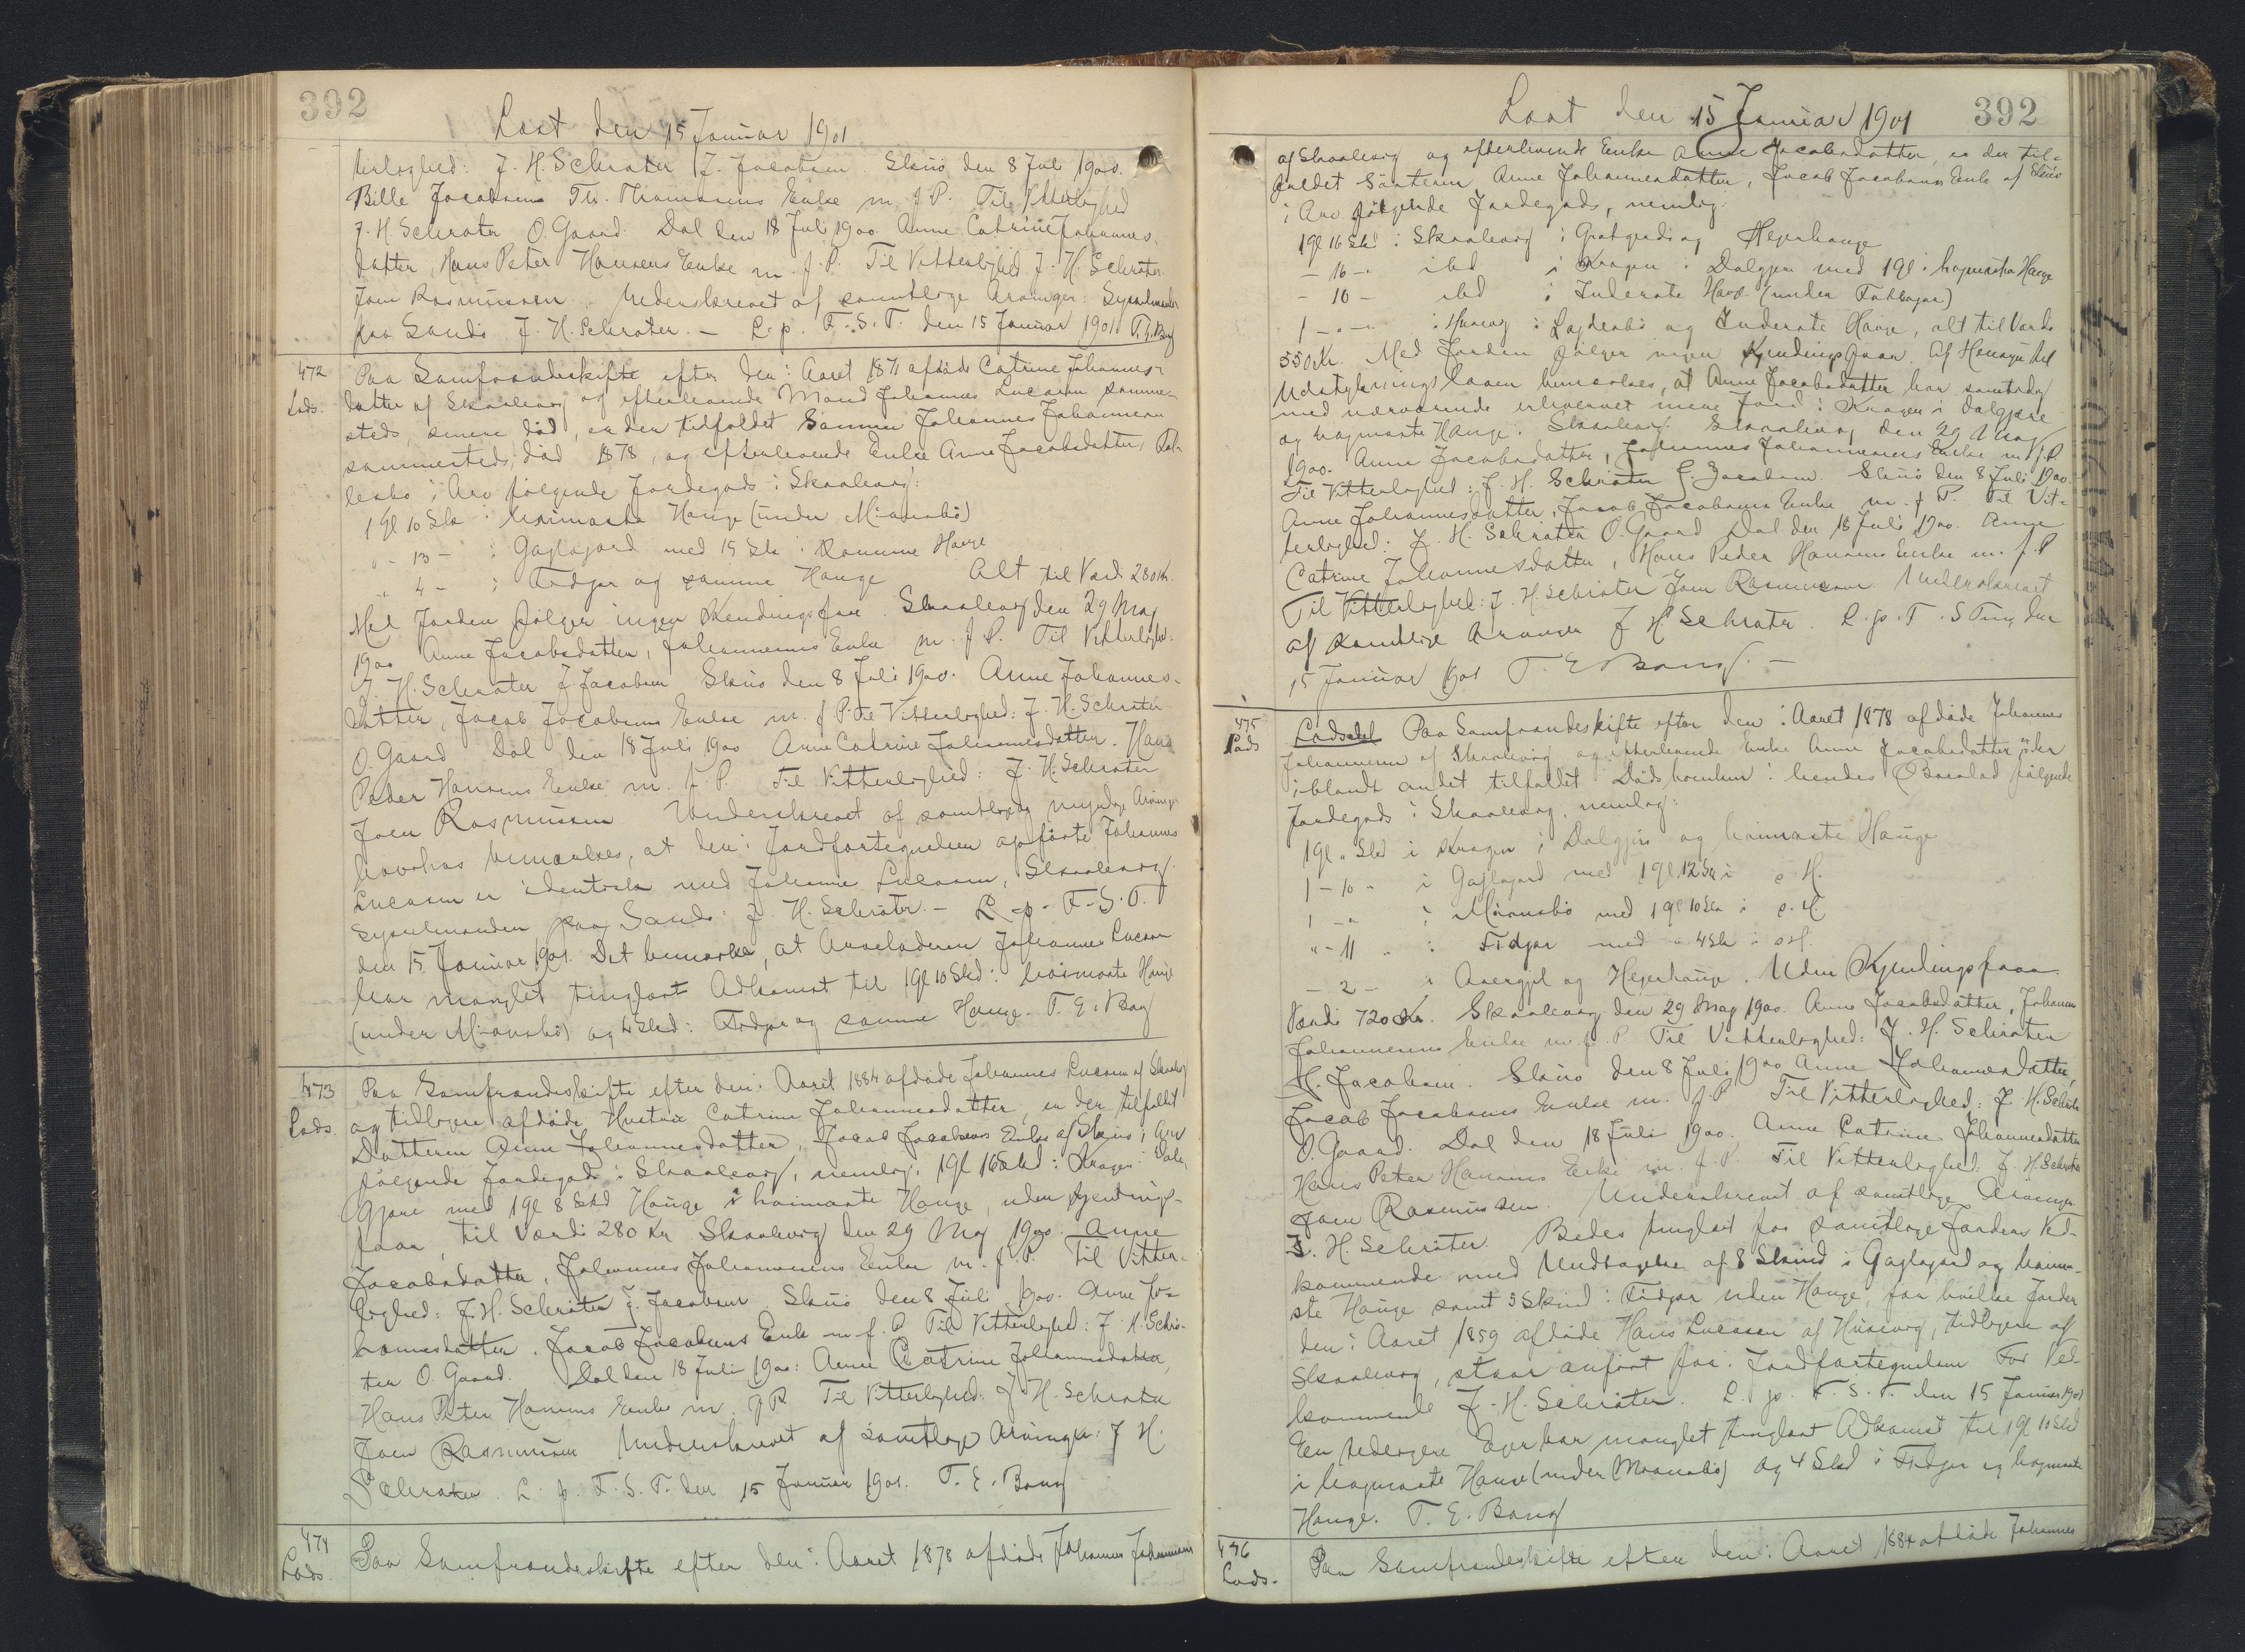 392
Læst den 15 Januar 1901
terlighed: J. H. Schrøter J. Jacobsen. Skuø den 8 Juli 1900.
Bille Jacobsens Th. Thomasens Enke m. f. P. Til Vitterlighed
J. H. Schrøter O. Gaard. Dal den 18 Juli 1900 Anne Catrine Johannes-
datter, Hans Peter Hansens Enke m. f. P. Til Vitterlighed J. H. Schrøter
Joen Rasmussen. Underskrevet af samtlige Arvinger. Sysselmanden
paa Sandø J. H. Schrøter. — L. p. F. S. T. den 15 Januar 1901 T. E. Bang
472
Lods.
Paa Samfrændeskifte efter den i Aaret 1871 afdøde Catrine Johannes-
datter af Skaalevig og efterlevende Mand Johannes Lucasen samme-
steds, senere død, er der tilfaldet Sønnen Johannes Johannesen
sammesteds, død 1878, og efterlevende Enke Anne Jacobsdatter
i Arv følgende Jordegods i Skaalevig:
1 Gl 10 Sk i høimarka Hauge (under Miansbø)
" - 13 - i Gaglagard med 15 Sk i samme Hauge
" 4 - i Fidjar og samme Hauge Alt til Værdi 280 Kr.
Med Jorden følger ingen Kendingsfaar. Skaalevig den 29 Maj
1900 Anne Jacobsdatter, Johannesens Enke m. f. P. Til Vitterlighed:
J. H. Schrøter J. Jacobsen Skuø den 8 Juli 1900. Anne Johannes-
datter, Jacob Jacobsens Enke m. f. P. Til Vitterlighed: J. H. Schrøter
O. Gaard Dal den 18 Juli 1900 Anne Catrine Johannesdatter. Hans
Peder Hansens Enke m. f. P. Til Vitterlighed: J. H. Schrøter
Joen Rasmussen Underskrevet af samtlige myndige Arvinger
hvorhos bemærkes, at den i Jordfortegnelsen opførte Johannes
Lucasen er identisk med Johannes Lucasen, Skaalevig.
Sysselmanden paa Sandø: J. H. Schrøter. — L. p. F. S. T.
den 15 Januar 1901. Det bemærkes, at Arveladeren Johannes Lucasen
har manglet tinglæst Adkomst til 1 Gl 10 Skd i høimarka Hauge
(under Miansbø) og 4 Skd i Fidjar og samme Hauge. T. E. Bang
473
Lods.
Paa Samfrændeskifte efter den i Aaret 1884 afdøde Johannes Lucasen af Skaalevig
og tidligere afdøde Hustru Catrine Johannesdatter, er der tilfaldt
Datteren Anne Johannesdatter, Jacob Jacobsens Enke af Skuø i Arv
følgende Jordegods i Skaalevig, nemlig: 1 Gl 16 Skd i Kragen i Dal-
gjære med 1 Gl 8 Skd Hauge i høimarka Hauge, uden Kjendings-
faar, til Værdi 280 Kr Skaalevig den 29 Maj 1900. Anne
Jacobsdatter, Johannes Johannesens Enke m. f. P. Til Vitter-
lighed: J. H. Schrøter J. Jacobsen Skuø den 8 Juli 1900. Anne Jo-
hannesdatter. Jacob Jacobsens Enke m. f. P. Til Vitterlighed: J. H. Schrø-
ter O. Gaard. Dal den 18 Juli 1900: Anne Catrine Johannesdatter,
Hans Peter Hansens Enke m. f. P. Til Vitterlighed: J. H. Schrøter
Joen Rasmussen Underskrevet af samtlige Arvinger: J. H.
Schrøter. L. p. F. S. T. den 15 Januar 1901. T. E. Bang
474
Lods.
Paa Samfrændeskifte efter den i Aaret 1878 afdøde Johannes Johannesen
392
Læst den 15 Januar 1901
af Skaalevig og efterlevende Enke Anne Jacobsdatter, er der til-
faldet Søsteren Anne Johannesdatter, Jacob Jacobsens Enke af Skuø
i Arv følgende Jordegods, nemlig:
1 Gl 16 Skd i Skaalevig i Hejerhauge
— 16 - " ibd i Kragen i Dalgjæra med 1 Gl i høimarka Hauge
- 10 - ibd i Inderste Have (under
1 - " - " i Husevig i og Inderste Hauge, alt til Værdi
550 Kr. Med Jorden følger ingen Kjendingsfaar. Af Hensyn til
Udstykningsloven bemærkes, at Anne Jacobsdatter har samtidig
med nærværende erhvervet mere Jord i Kragen i Dalgjære
og høimarka Hauge i Skaalevig. Skaalevig den 29 Maj
1900. Anne Jacobsdatter, Johannes Johannesens Enke m. f. P.
Til Vitterlighed: J. H. Schrøter J. Jacobsen. Skuø den 8 Juli 1900.
Anne Johannesdatter, Jacob Jacobsens Enke m. f. P. Til Vit-
terlighed: J. H. Schrøter O. Gaard Dal den 18 Juli 1900. Anne
Catrine Johannesdatter, Hans Peder Hansens Enke m. f. P.
Til Vitterlighed: J. H. Schrøter Joen Rasmussen. Underskrevet
af samtlige Arvinger J. H. Schrøter. L. p. F. S Ting den
15 Januar 1901 T. E. Bang. —
475
Lods
Lodseddel Paa Samfrændeskifte efter den i Aaret 1878 afdøde Johannes
Johannesen af Skaalevig og efterlevende Enke Anne Jacobsdatter er
iblandt andet tilfaldet Dødsboenken i hendes Boeslod følgende
Jordegods i Skaalevig, nemlig:
1 Gl " Skd i Kragen i Dalgjæra og høimarka Hauge
1 - 10 - i Gaglagard med 1 Gl 12 Sk i s. H.
1 - " i Miansbø med 1 Gl 10 Sk i s. H.
" - 11 " i Fidjar med " 4 Sk i s. H.
- 2 - i og Hejerhauge. Uden Kjendingsfaar.
Værdi 720 Kr. Skaalevig den 29 Maj 1900. Anne Jacobsdatter, Johannes
Johannesens Enke m. f. P. Til Vitterlighed: J. H. Schrøter
H. Jacobsen. Skuø den 8 Juli 1900 Anne Johannesdatter,
Jacob Jacobsens Enke m. f. P. Til Vitterlighed: J. H. Schrøter
O. Gaard. Dal den 18 Juli 1900. Anne Catrine Johannesdatter
Hans Peter Hansens Enke m. f. P. Til Vitterlighed: J. H. Schrøter
Joen Rasmussen. Underskrevet af samtlige Arvinger
J. H. Schrøter. Bedes tinglæst for samtlige Jorders Ved-
kommende med Undtagelse af 8 Skind i Gaglagard og høimar-
ste Hauge samt 3 Skind i Fidjar uden Hauge, for hvilke Jorder
den i Aaret 1859 afdøde Hans Lucasen af Husevig, tidligere af
Skaalevig, staar anført for i Jordfortegnelsen For Ved-
kommende J. H. Schrøter. L. p. F. S. T. den 15 Januar 1901
Den tidligere Ejer har manglet tinglæst Adkomst til 1 Gl 10 Skd
i høimarka Hauge (under Miansbø) og 4 Skd i Fidjar og høimarka
Hauge. T. E. Bang
476
Lods.
Paa Samfrændeskifte efter den i Aaret 1884 afdøde Johannes